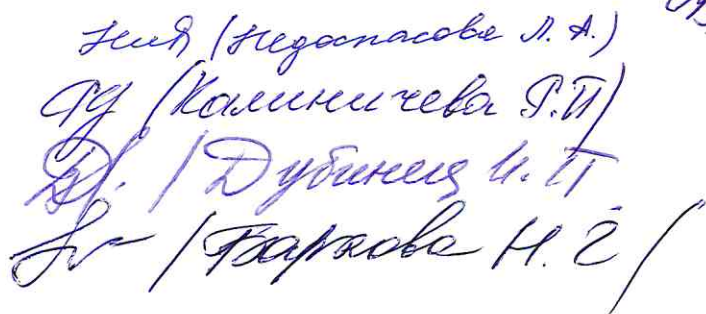 (Недоспасова Л. А.)
(Калиничева Р. П)
/ Дубинец И. П
/ Баркова Н. Г /